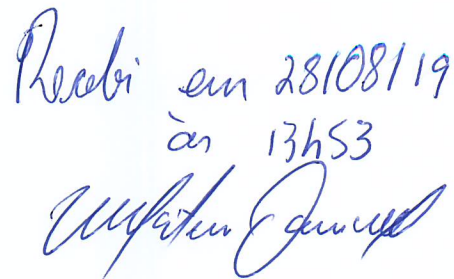 Recebi em 28/08/19
às 13h53